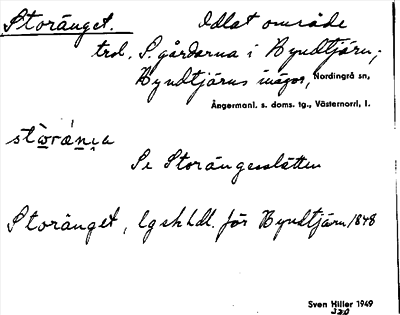 Storänget. Odlat område
trol. S. gårdarna i Byndtjärn;
Byndtjärns inägor, Nordingrå sn,
Ångermanl. s. doms. tg., Västernorrl. l.
Se Storängesslåtten
Storänget, lgskhdl. för Byndtjärn 1848
Sven Hiller 1949